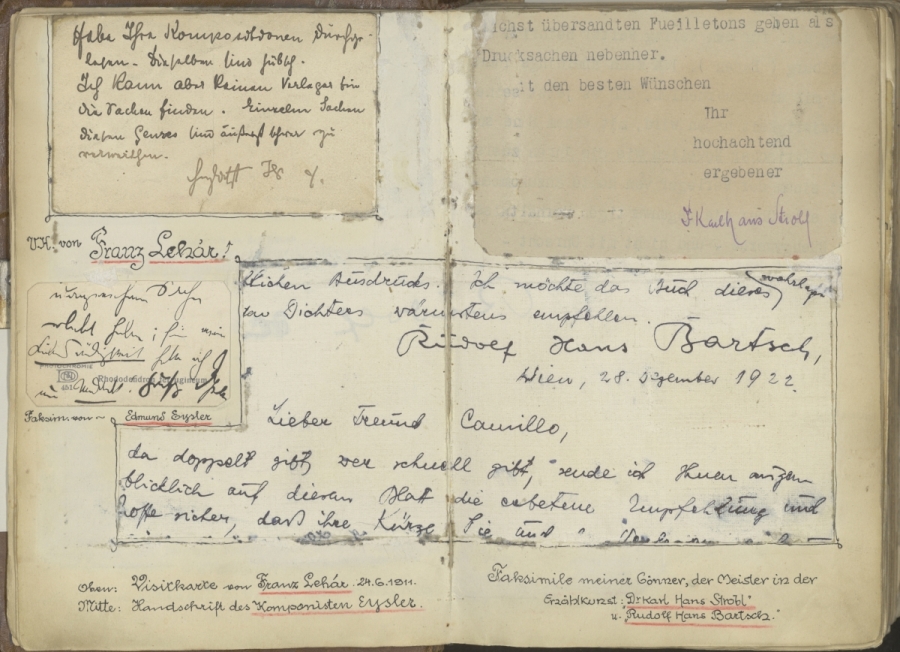 Habe Ihre Kompositionen durchge-
lesen. Dieselben sind hübsch.
Ich kann aber keinen Verleger für
die Sachen finden. Einzelne Sachen
dieses Genres sind äußerst schwer zu
verwerthen.
chst übersandten Fueilletons gehen als
Drucksachen nebenher.
it den besten Wünschen
Ihr
hochachtend
ergebener
Dr Karl Hans Strobl
V.K. von Franz Lehár!
erlebt habe; für mein
Liebenswürdigkeit habe ich
Rhododendron
Faksim. von Edmund Eysler
blichen Ausdrucks. Ich möchte das Buch dieses
Dichters wärmstens empfehlen.
Rudolf Hans Bartsch,
Wien, 28. Dezember 1922.
Lieber Freund Camillo,
da doppelt gibt, wer schnell gibt, sende ich Ihnen augen
blicklich auf diesem Blatt die erbetene Empfehlung und
hoffe sicher, daß ihre Kürze Sie
Oben: Visitkarte von Franz Lehár. 24.6.1911.
Mitte: Handschrift des Komponisten Eysler.
Faksimile meiner Gönner, der Meister in der
Erzählkunst: "Dr Karl Hans Strobl"
u. "Rudolf Hans Bartsch."